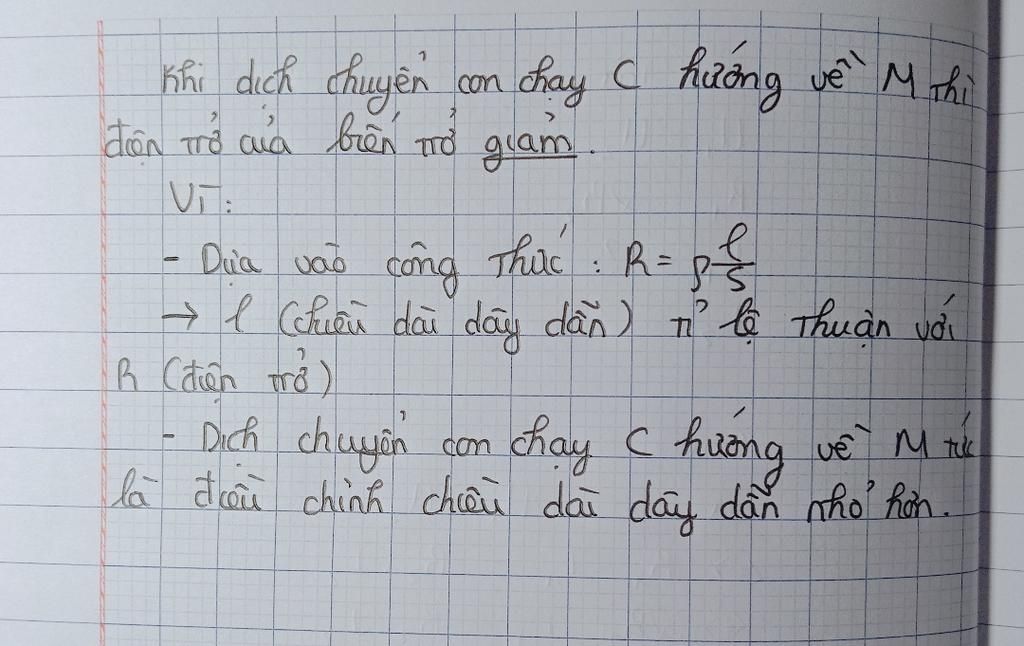 Khi dịch chuyển con chạy C hướng về M thì
điện trở của biến trở giảm.
Vì:
- Dựa vào công thức: R = ρ l/S
→ l (chiều dài dây dẫn) tỉ lệ thuận với
R (điện trở)
- Dịch chuyển con chạy C hướng về M tức
là điều chỉnh chiều dài dây dẫn nhỏ hơn.